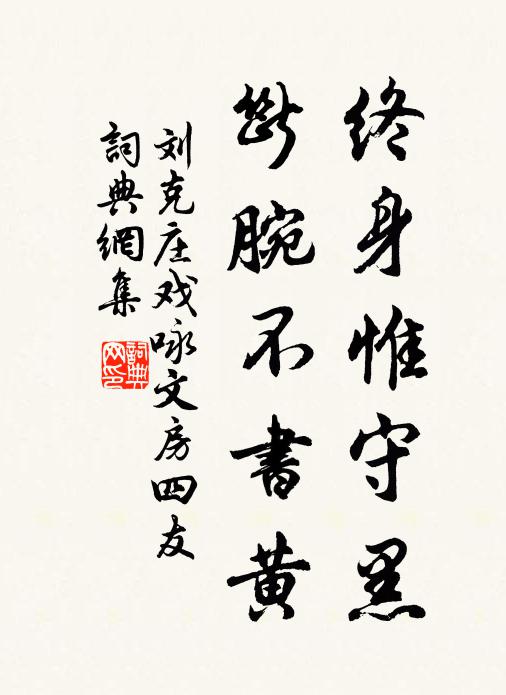 終身惟守黑
斷腕不書黄
刘克庄戏咏文房四友
詞典網集
詞典
网印